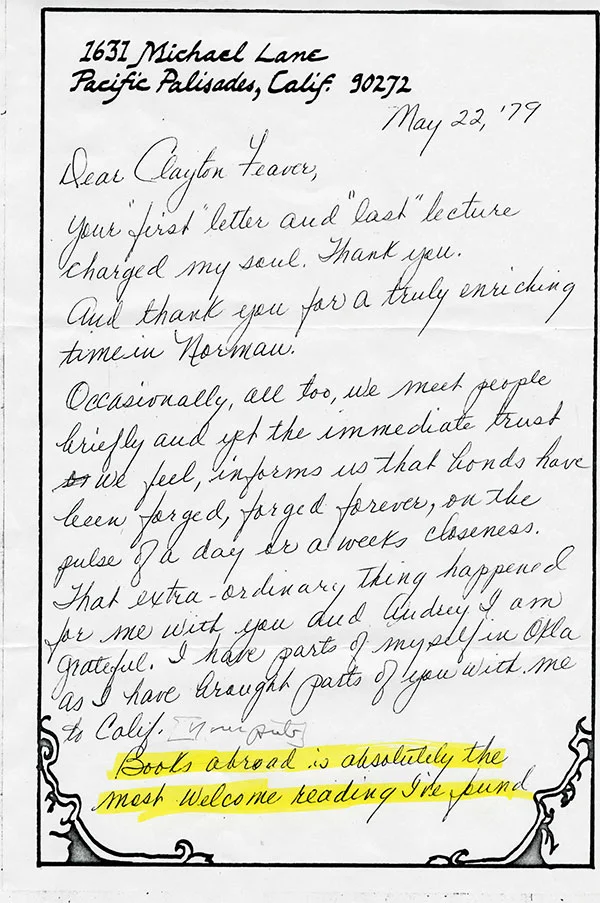 1631 Michael Lane
Pacific Palisades, Calif. 90272
May 22, '79
Dear Clayton Feaver,
Your "first" letter and "last" lecture
charged my soul. Thank you.
And thank you for a truly enriching
time in Norman.
Occasionally, all too, we meet people
briefly and yet the immediate trust
we feel, informs us that bonds have
been forged, forged forever, on the
pulse of a day or a weeks closeness.
That extra-ordinary thing happened
for me with you and Audrey I am
grateful. I have parts of myself in Okla
as I have brought parts of you with me
to Calif.
Books abroad is absolutely the
most welcome reading I've fund